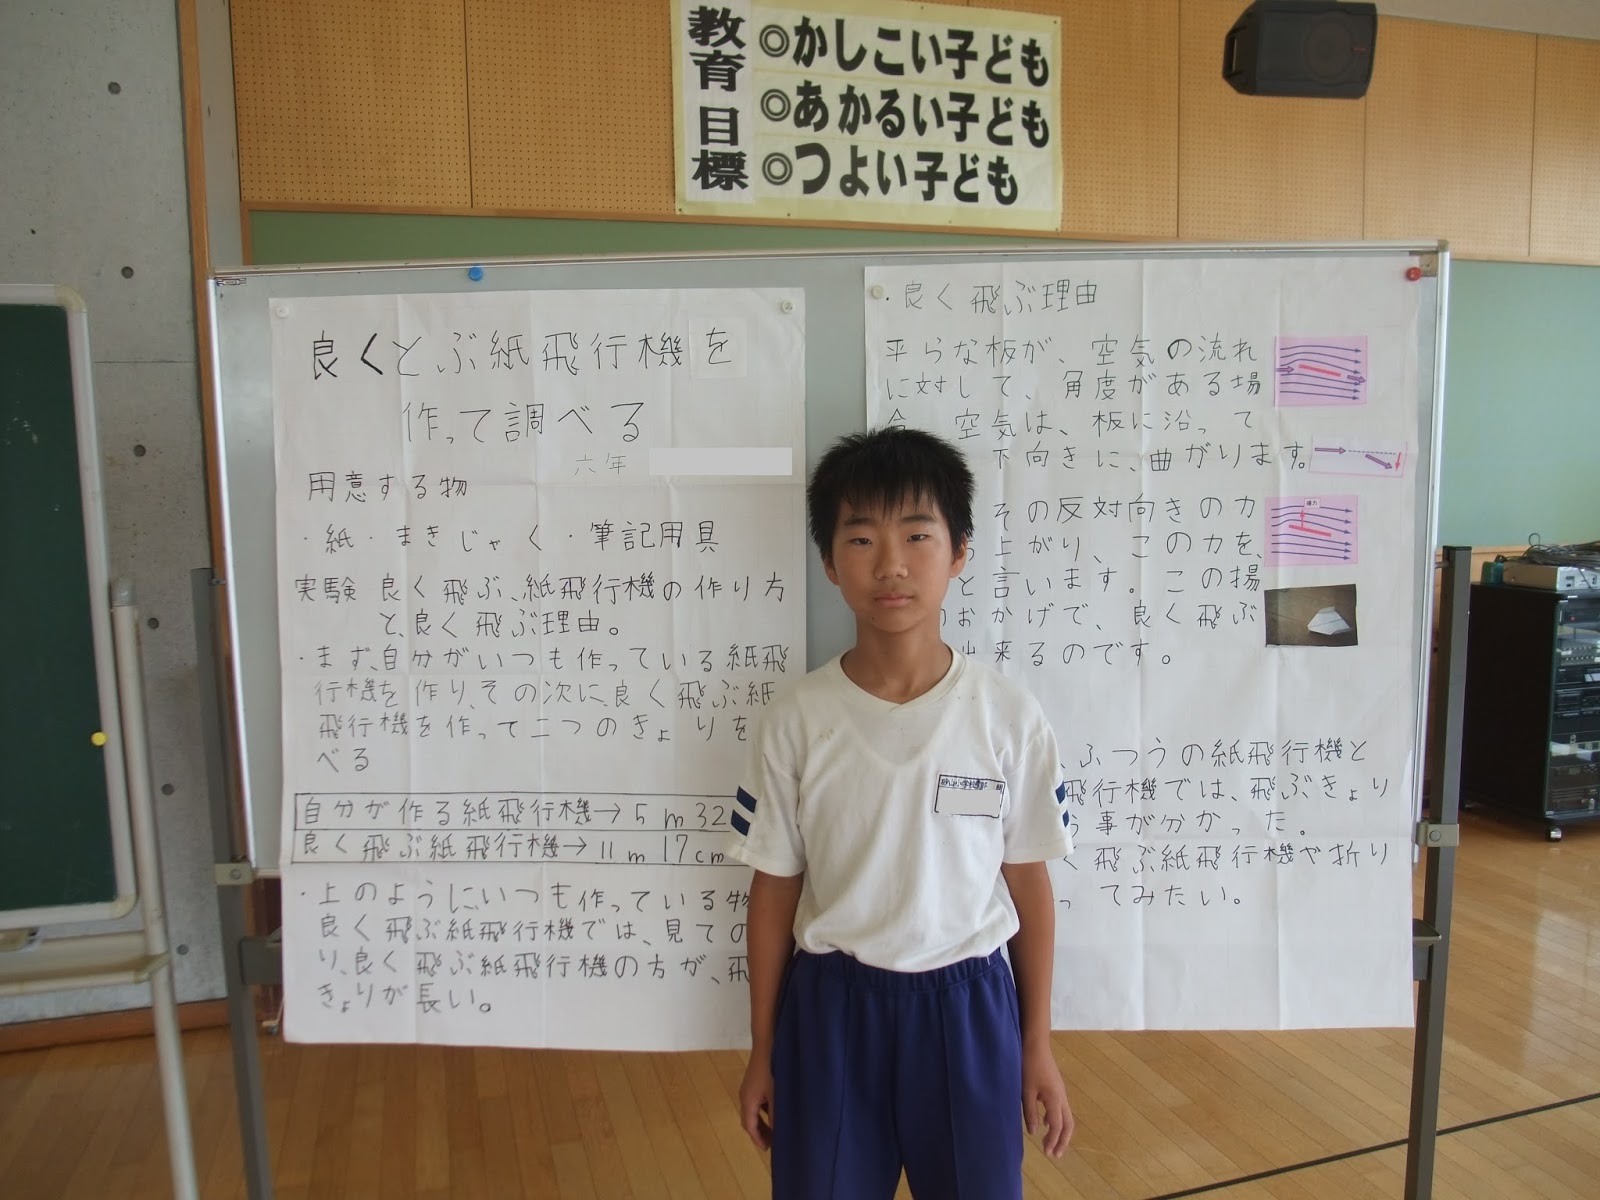 教育目標
◎かしこい子ども
◎あかるい子ども
◎つよい子ども
良くとぶ紙飛行機を
作って調べる
六年
用意する物
・紙・まきじゃく・筆記用具
実験 良く飛ぶ、紙飛行機の作り方
と、良く飛ぶ理由。
・まず、自分がいつも作っている紙飛
行機を作り、その次に、良く飛ぶ紙
飛行機を作って二つのきょりを
べる
自分が作る紙飛行機→5m32
良く飛ぶ紙飛行機→11m17cm
・上のように、いつも作っている物
良く飛ぶ紙飛行機では、見ての
り、良く飛ぶ紙飛行機の方が、飛
きょりが長い。
・良く飛ぶ理由
平らな板が、空気の流れ
に対して、角度がある場
合 空気は、板に沿って
下向きに、曲がります。
その反対向きの力
上がり、この力を、
と言います。この揚
おかげで、良く飛ぶ
出来るのです。
揚力
ふつうの紙飛行機と
飛行機では、飛ぶきょり
事が分かった。
く飛ぶ紙飛行機や折り
ってみたい。